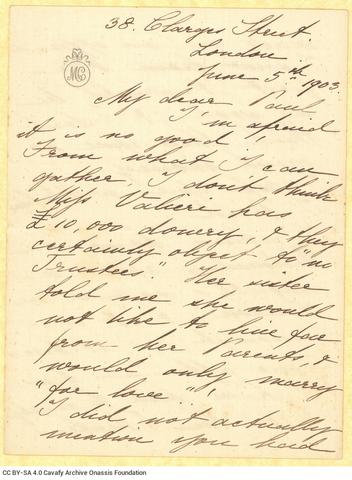 38. Clarges Street.
London
June 5th 1903.
MC
My dear Paul
I'm afraid
it is no good!
From what I can
gather, I don't think
Miss Valieri has
£10,000 dowery, & they
certainly object to "no
Trustees." Her sister
told me she would
not like to live far
from her Parents, &
would only marry
"for love".
I did not actually
mention you had
CC BY-SA 4.0 Cavafy Archive Onassis Foundation